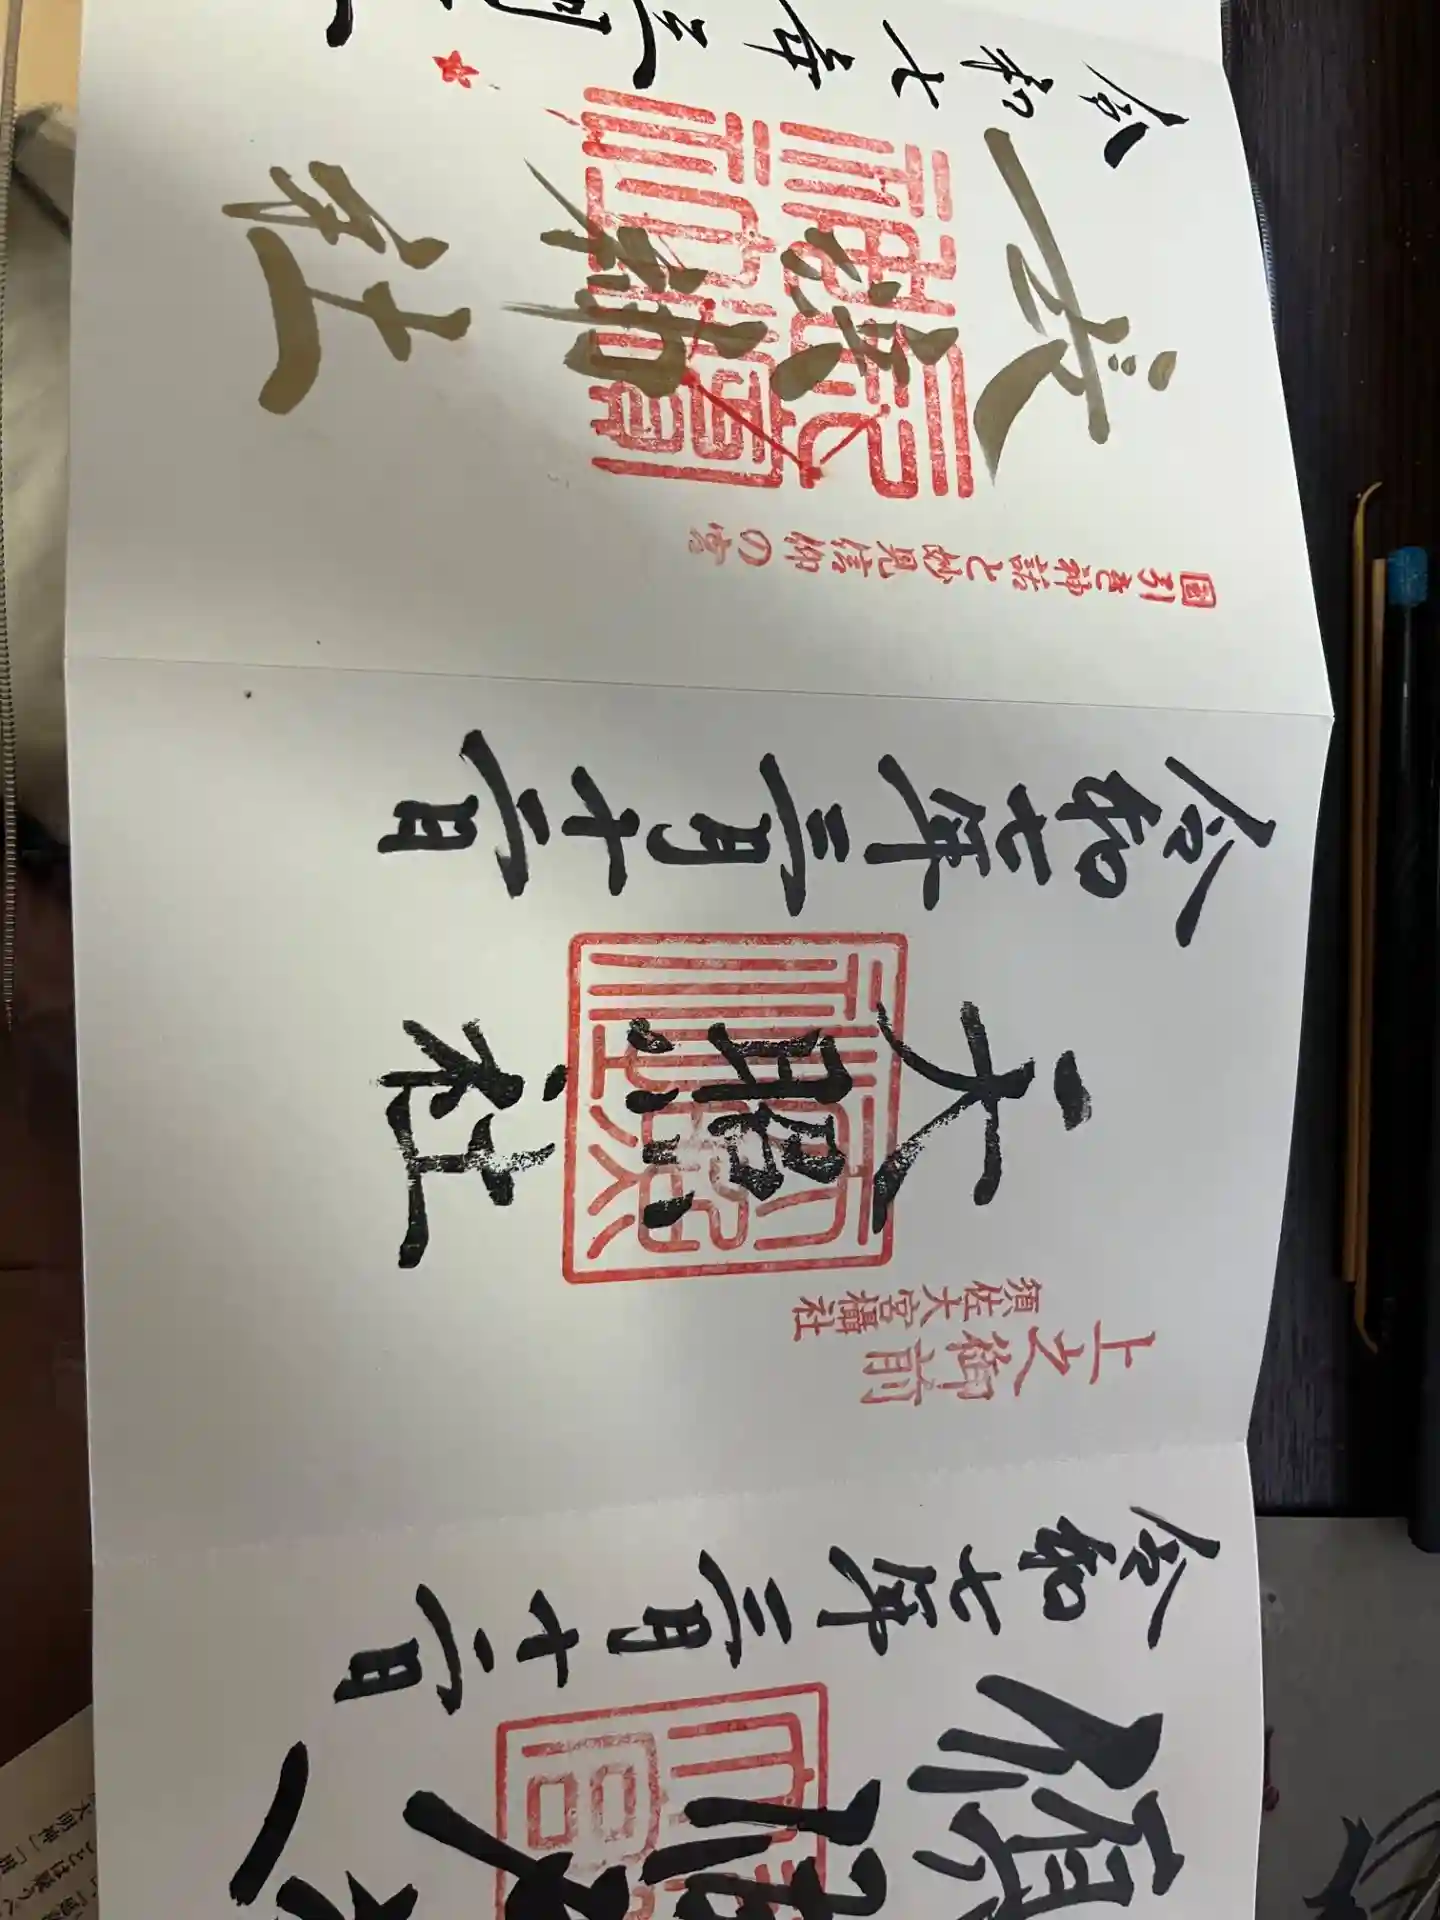 令和七年三月十二日
上之御前
須佐大宮攝社
天照社
令和七年三月十二日
國引き神話と妙見信仰の宮
長浜神社
令和七年三月